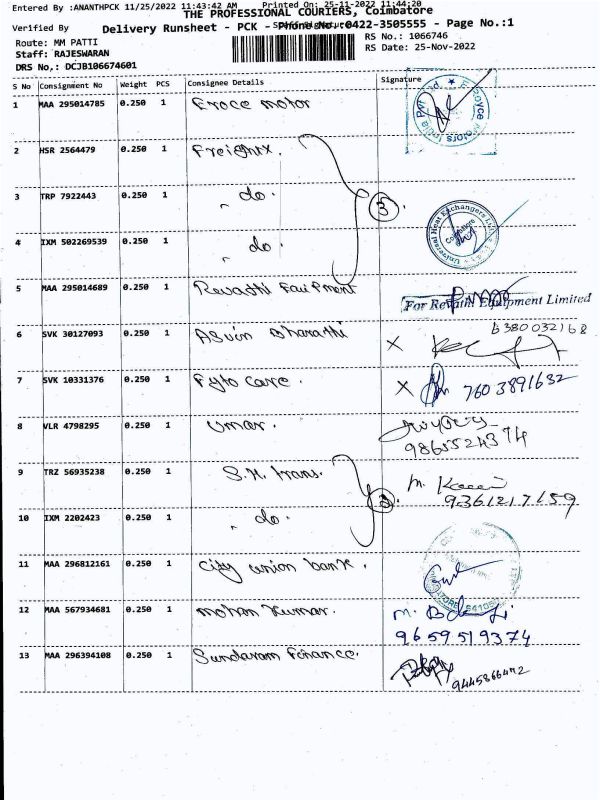 Entered By :ANANTHPCK 11/25/2022 11:43:42 AM Printed On: 25-11-2022 11:44:20
THE PROFESSIONAL COURIERS, Coimbatore
Verified By Staff Signature
Delivery Runsheet - PCK - Phone No.:0422-3505555 - Page No.:1
Route: MM PATTI RS No.: 1066746
Staff: RAJESWARAN RS Date: 25-Nov-2022
DRS No,: DCJB106674601
S No Consignment No Weight PCS Consignee Details Signature
1 MAA 295014785 0.250 1 Eroce motor
2 HSR 2564479 0.250 1 Freightx.
3 TRP 7922443 0.250 1 " do. 3
4 IXM 502269539 0.250 1 " do. Universal Heat Exchangers Ltd Coimbatore
5 MAA 295014689 0.250 1 Revathi Equipment For Revathi Equipment Limited
6 SVK 30127093 0.250 1 Asvin Bharathi X 6380032168
7 SVK 10331376 0.250 1 Fyto care. X 7603891632
8 VLR 4798295 0.250 1 Umar.
9865524374
9 TRZ 56935238 0.250 1 S.H. trans. M.
9361217159
10 IXM 2202423 0.250 1 " do. 2.
11 MAA 296812161 0.250 1 City union bank.
12 MAA 567934681 0.250 1 Mohan Kumar. M.
9659519374
13 MAA 296394108 0.250 1 Sundaram Finance.
9445866472